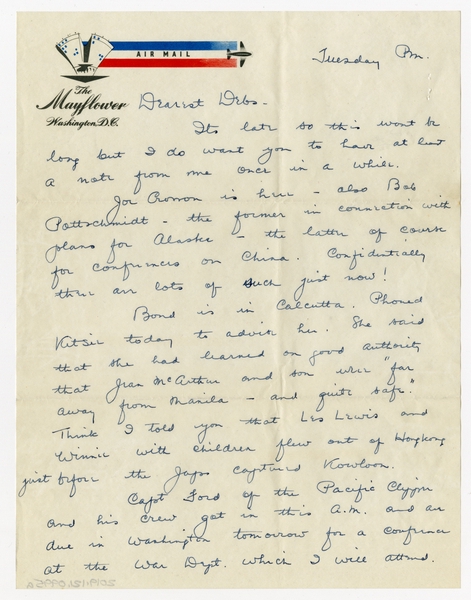 AIR MAIL
The
Mayflower
Washington, D.C.
Tuesday Pm.
Dearest Debs-
Its late so this wont be
long but I do want you to have at least
a note from me once in a while.
Joe Cronon is here - also Bob
Pottschmidt - the former in connection with
plans for Alaska - the latter of course
for conferences on China. Confidentially
there are lots of such just now!
Bond is in Calcutta. Phoned
Kitsie today to advise her. She said
that she had learned on good authority
that Jean McArthur and son were "far
away from Manila - and quite safe."
Think I told you that Les Lewis and
Winnie with children flew out of Hongkong
just before the Japs captured Kowloon.
Capt Ford of the Pacific Clipper
and his crew got in this A.M. and are
due in Washington tomorrow for a conference
at the War Dept. which I will attend.